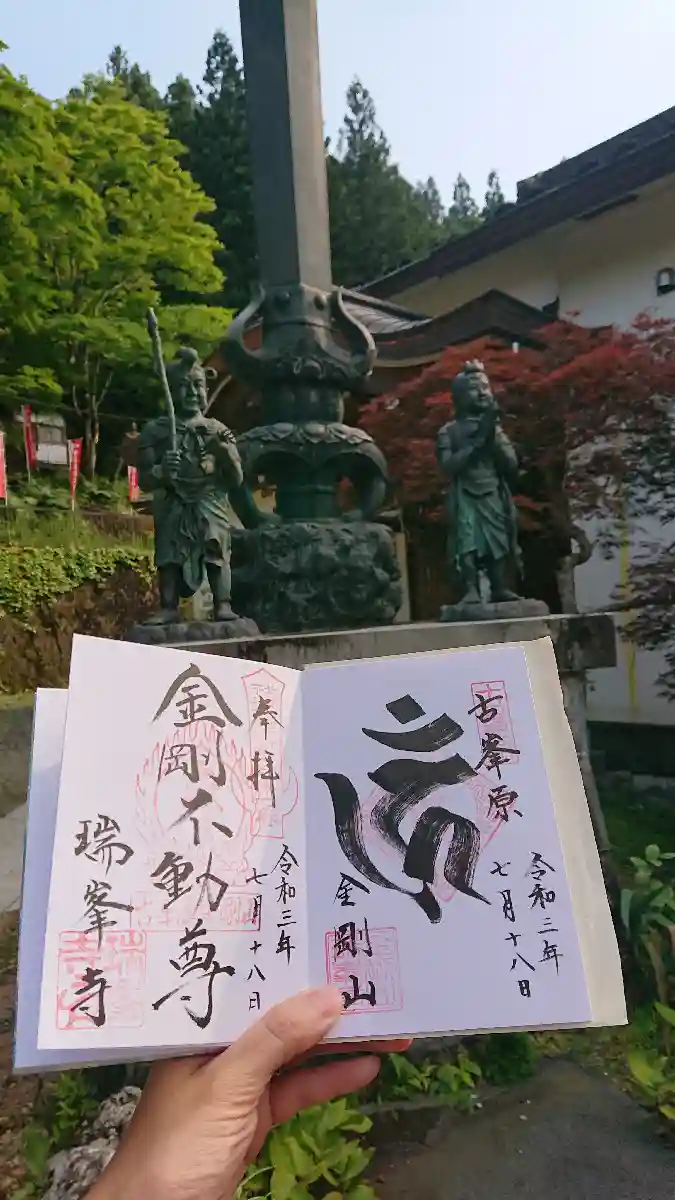 古峯原
令和三年
七月十八日
金剛山
奉拝
金剛不動尊
令和三年
七月十八日
瑞峯寺